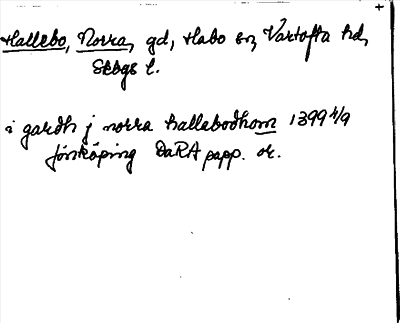 Hallebo, Norra, gd, Habo sn, Vartofta hd,
Skbgs l.
i gardh j norra hallabodhom 1399 4/9
Jönköping DaRA papp. or.